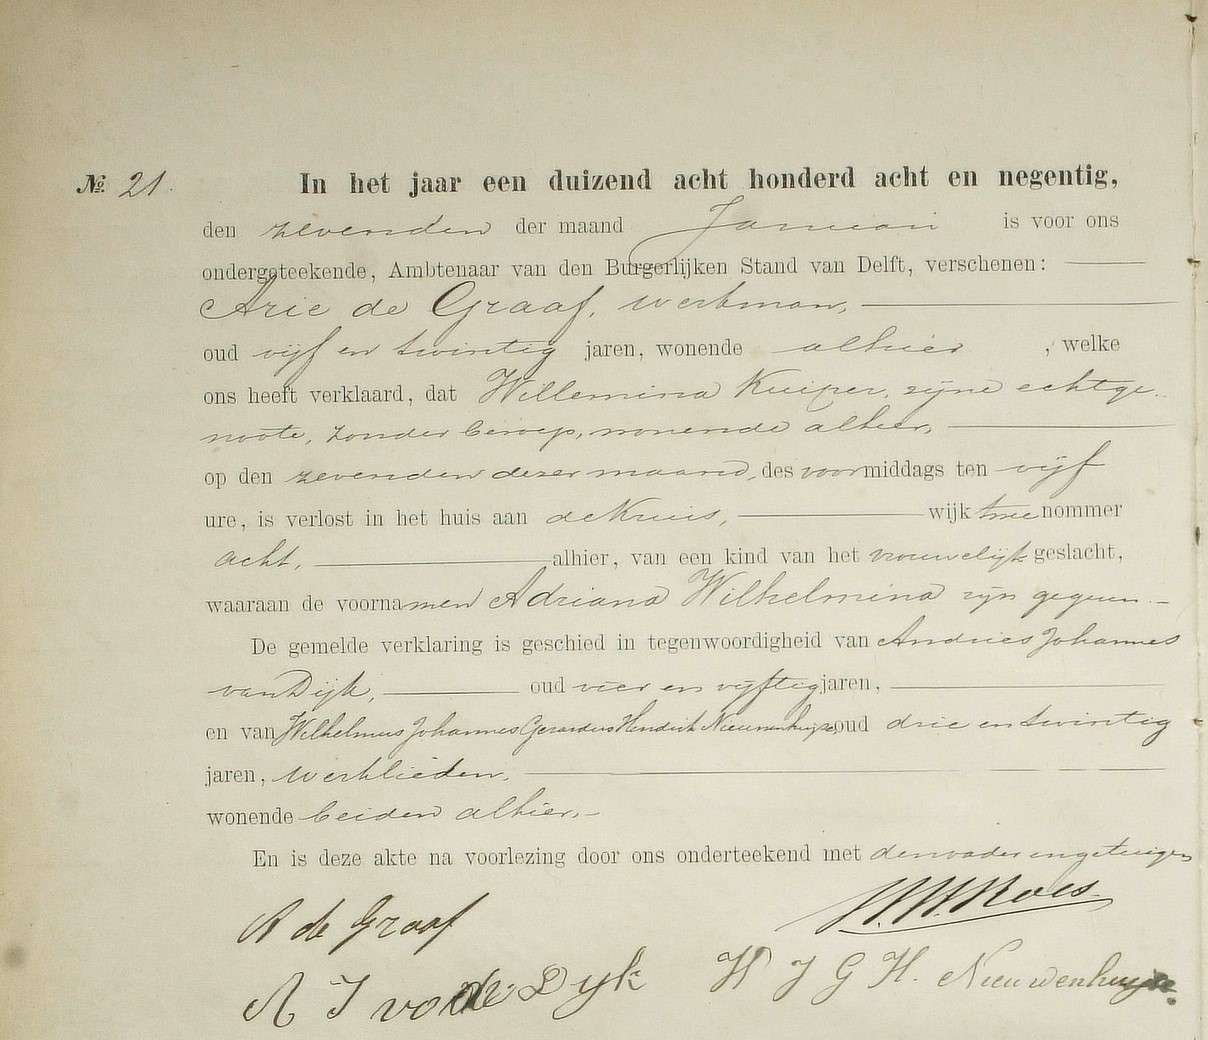 №. 21.
In het jaar een duizend acht honderd acht en negentig,
den zevenden der maand Januari is voor ons
ondergeteekende, Ambtenaar van den Burgerlijken Stand van Delft, verschenen:
Arie de Graaf, werkman,
oud vijf en twintig jaren, wonende alhier, welke
ons heeft verklaard, dat Willemina Kuiper, zijne echtge-
noote, zonder beroep, wonende alhier,
op den zevenden dezer maand, des voormiddags ten vijf
ure, is verlost in het huis aan de Kruis, wijk twee nommer
acht, alhier, van een kind van het vrouwelijk geslacht,
waaraan de voornamen Adriana Wilhelmina zijn gegeven.
De gemelde verklaring is geschied in tegenwoordigheid van Andries Johannes
van Dijk, oud vier en vijftig jaren,
en van Wilhelmus Johannes Gerardus Hendrik Nieuwenhuyze, oud drie en twintig
jaren, werklieden,
wonende beiden alhier.
En is deze akte na voorlezing door ons onderteekend met den vader en getuigen
A de Graaf
A J van Dyk W J G H. Nieuwenhuyze.